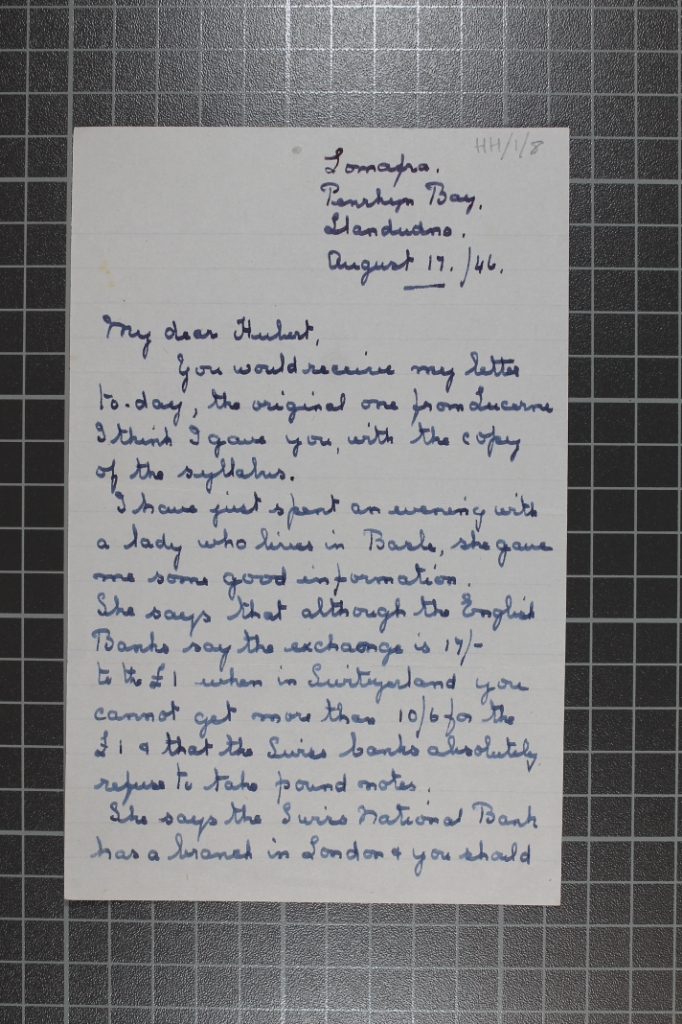 HH/1/8
Lomapra.
Penrhyn Bay.
Llandudno.
August 17./46.
My dear Hubert,
You would receive my letter
to-day, the original one from Lucerne
I think I gave you, with the copy
of the syllabus.
I have just spent an evening with
a lady who lives in Basle, she gave
me some good information.
She says that although the English
Banks say the exchaonge is 17/-
to the £1 when in Switzerland you
cannot get more than 10/6 for the
£1 & that the Swiss banks absolutely
refuse to take pound notes.
She says the Swiss National Bank
has a branch in London & you should